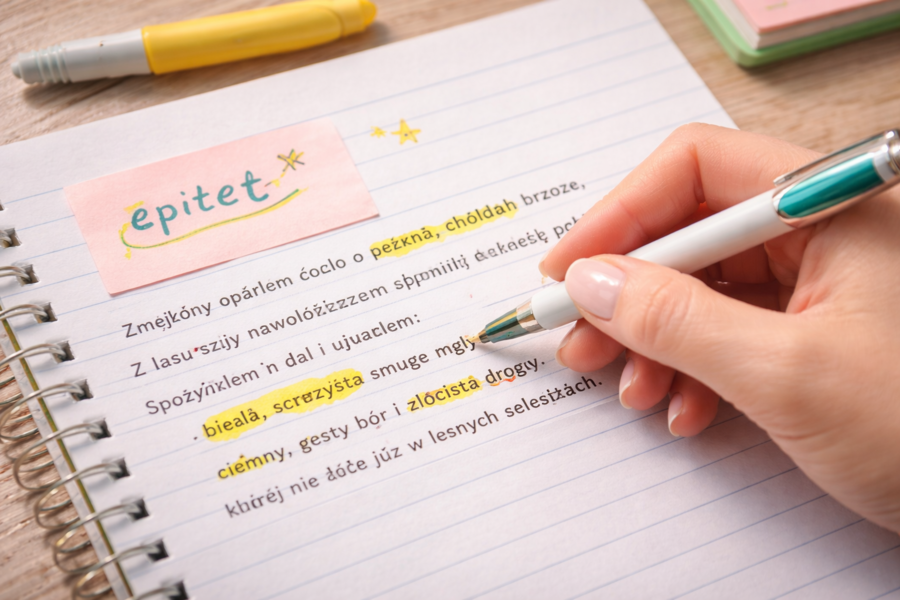 epitet
Zmejkóny opárlem ćoclo o peżkną, chóldah brzoze,
Z lasu szijy nawolóżzzzem
Spożyïxlem'n dal i ujuaclem:
bielă, screzyśta smuge mgly
ciemny, gesty bór i zlocistă drogy.
kbiréj nie dóće júz w lesnych selesiżách.